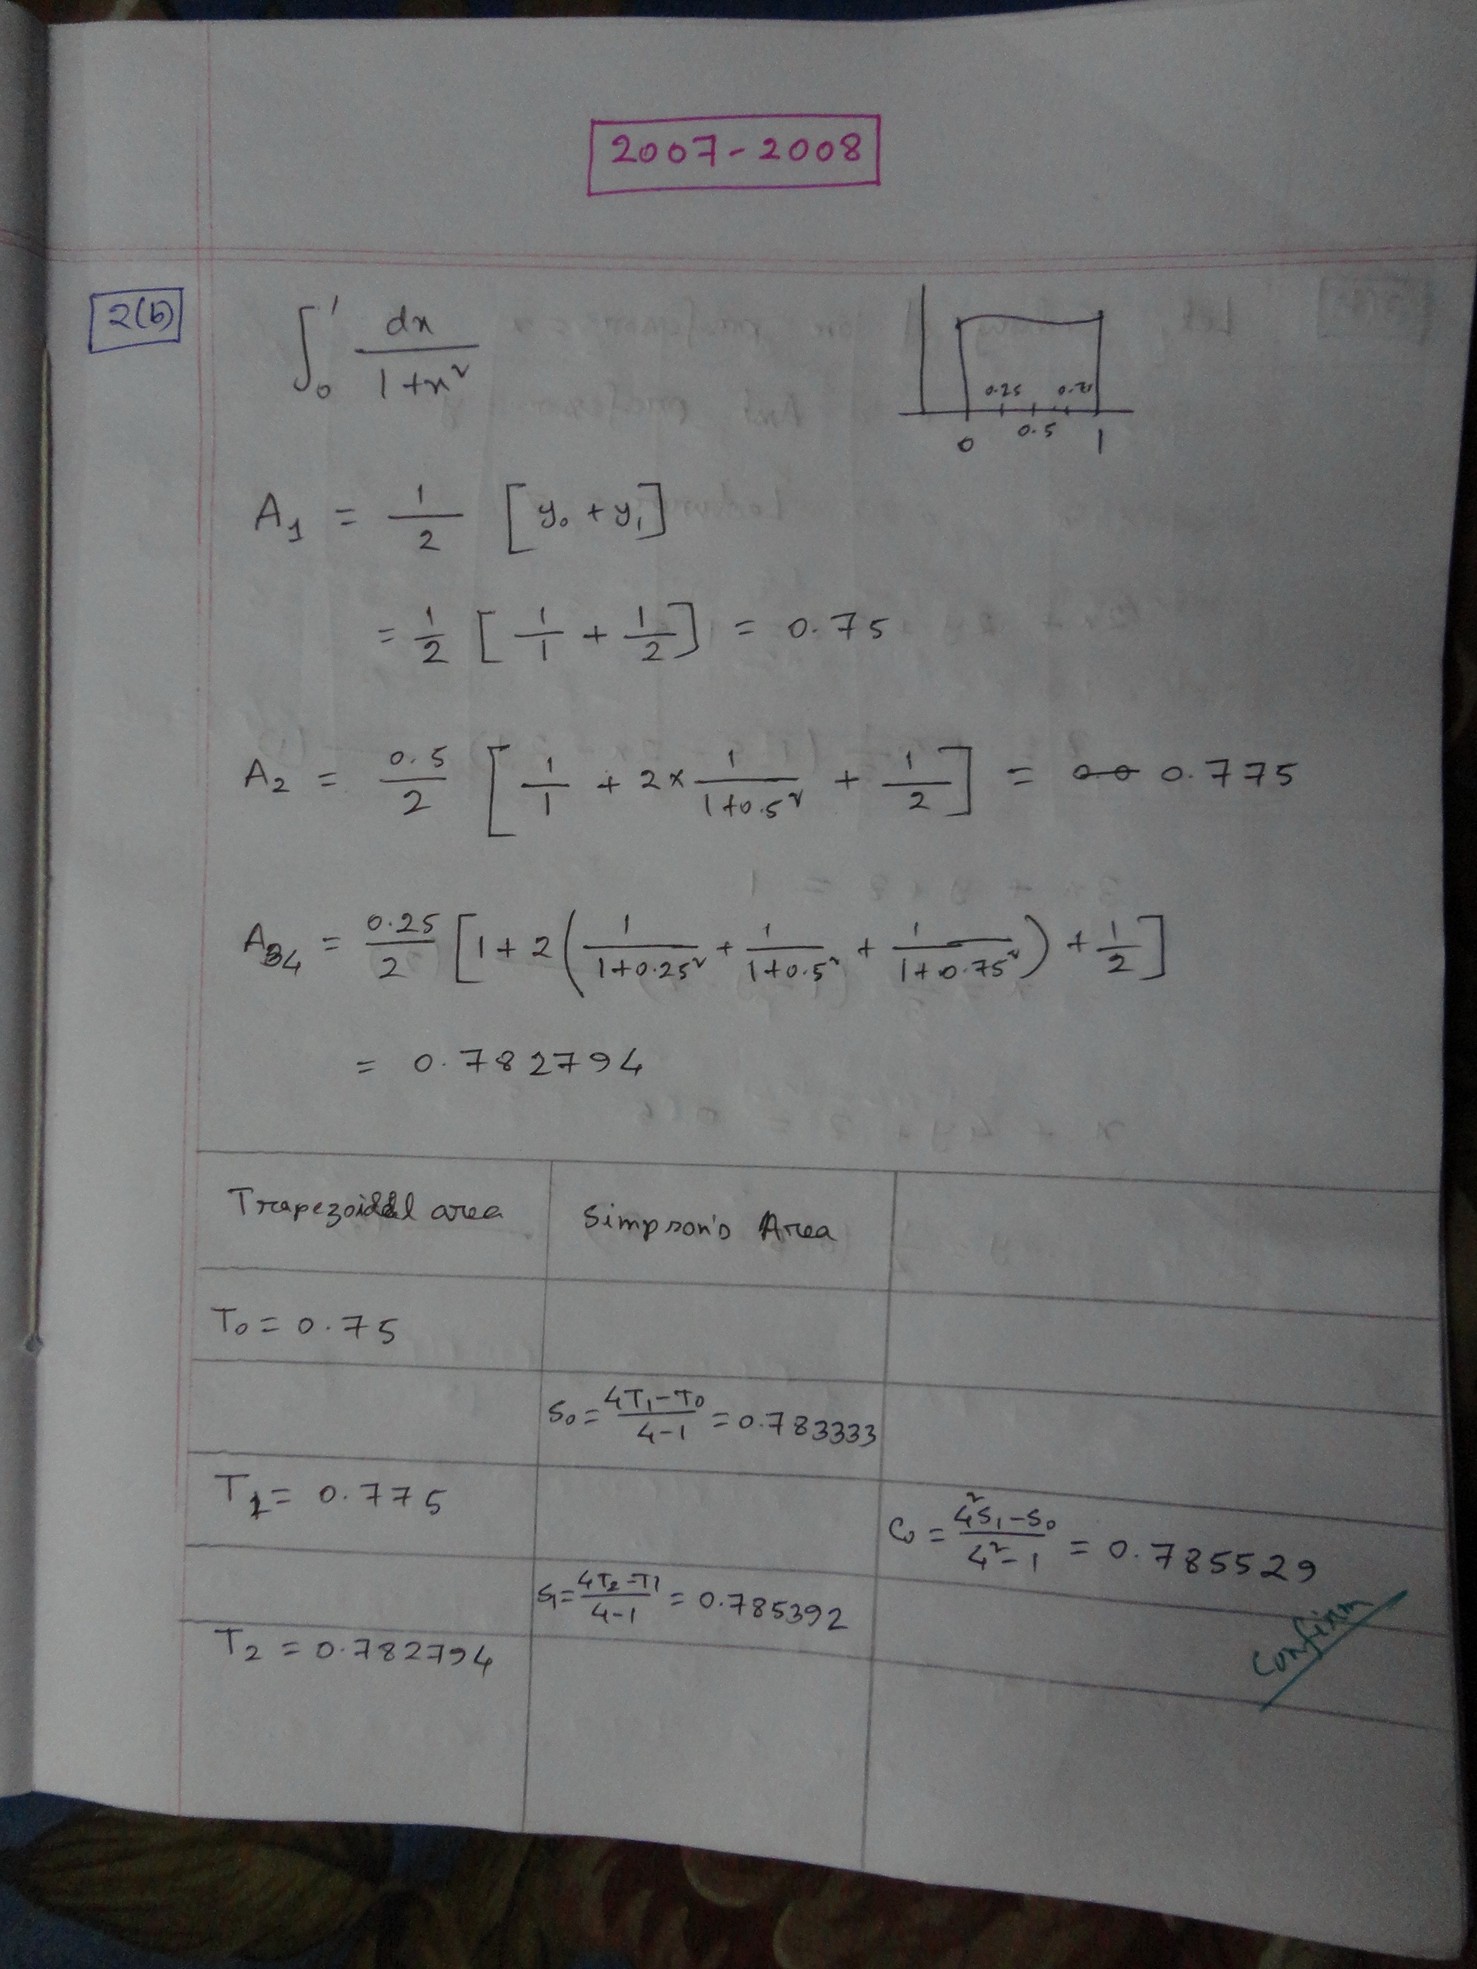 2007-2008
2(b) ∫₀¹ dx / 1+x²
0.25 0.75
0 0.5 1
A₁ = 1/2 [y₀ + y₁]
= 1/2 [1/1 + 1/2] = 0.75
A₂ = 0.5/2 [1/1 + 2× 1/1+0.5² + 1/2] = 0.775
A₄ = 0.25/2 [1+2(1/1+0.25² + 1/1+0.5² + 1/1+0.75²) + 1/2]
= 0.782794
Trapezoidal area Simpson's Area
T₀ = 0.75
S₀ = 4T₁-T₀/4-1 = 0.783333
T₁ = 0.775
C₀ = 4²S₁-S₀/4²-1 = 0.785529
S₁ = 4T₂-T₁/4-1 = 0.785392
T₂ = 0.782794
Confirm